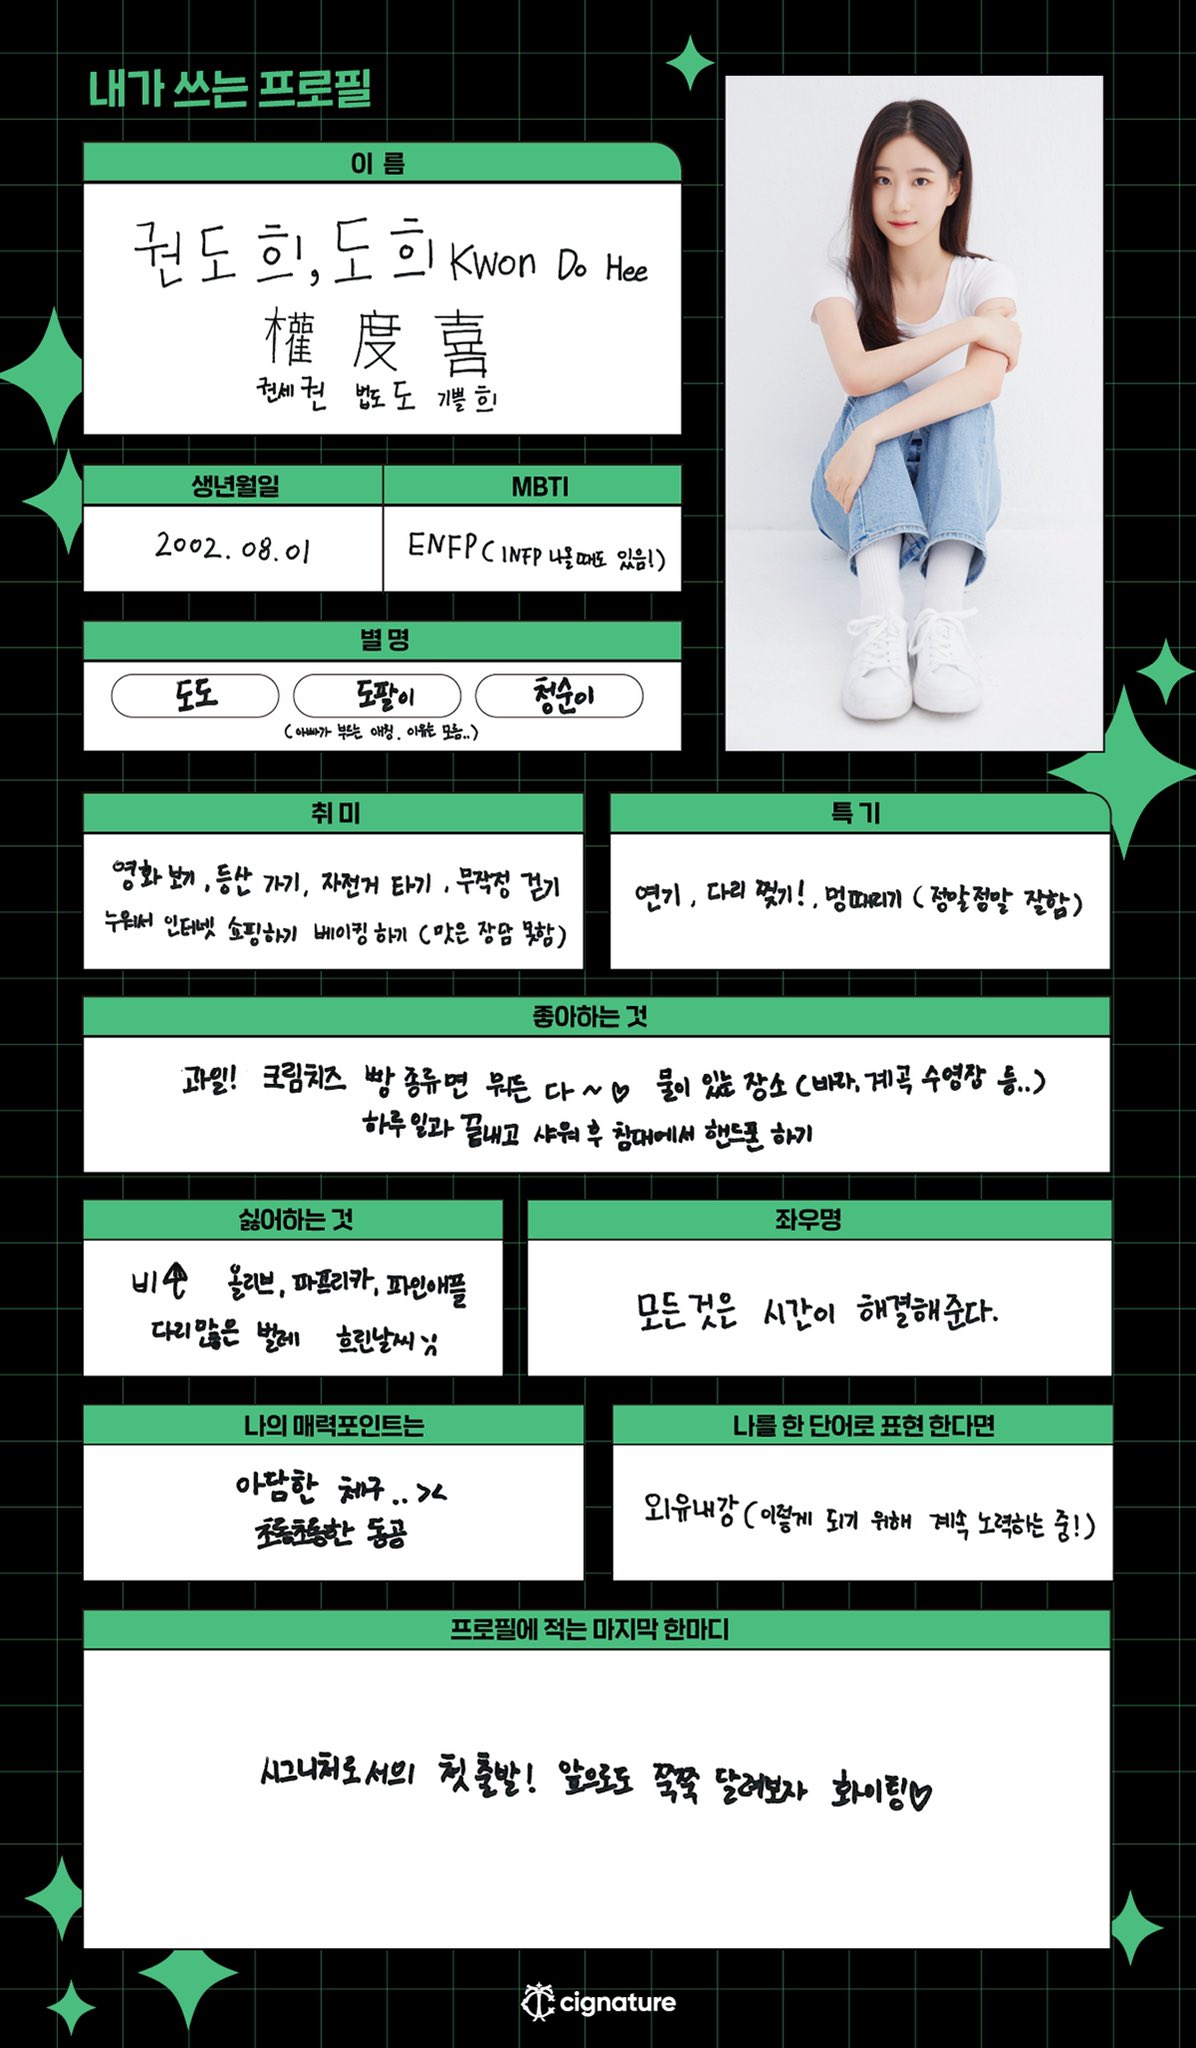 내가 쓰는 프로필
이 름
권도희, 도희 Kwon Do Hee
權 度 喜
권세 권 법도 도 기쁠 희
생년월일
MBTI
2002. 08. 01
ENFP (INFP 나올때도 있음!)
별 명
도도
도팔이
청순이
(아빠가 부르는 애칭. 이유는 모름..)
취 미
영화 보기, 등산 가기, 자전거 타기, 무작정 걷기
누워서 인터넷 쇼핑하기 베이킹 하기 (맛은 장담 못함)
특 기
연기, 다리 찢기!, 멍때리기 (정말정말 잘함)
좋아하는 것
과일! 크림치즈 빵 종류면 뭐든 다~♡ 물이 있는 장소 (바다, 계곡 수영장 등..)
하루일과 끝내고 샤워 후 침대에서 핸드폰 하기
싫어하는 것
비 올리브, 파프리카, 파인애플
다리많은 벌레 흐린날씨
좌우명
모든것은 시간이 해결해준다.
나의 매력포인트는
아담한 체구..><
초롱초롱한 동공
나를 한 단어로 표현 한다면
외유내강 (이렇게 되기 위해 계속 노력하는 중!)
프로필에 적는 마지막 한마디
시그니처로서의 첫 출발! 앞으로도 쭉쭉 달려보자 화이팅♡
cignature